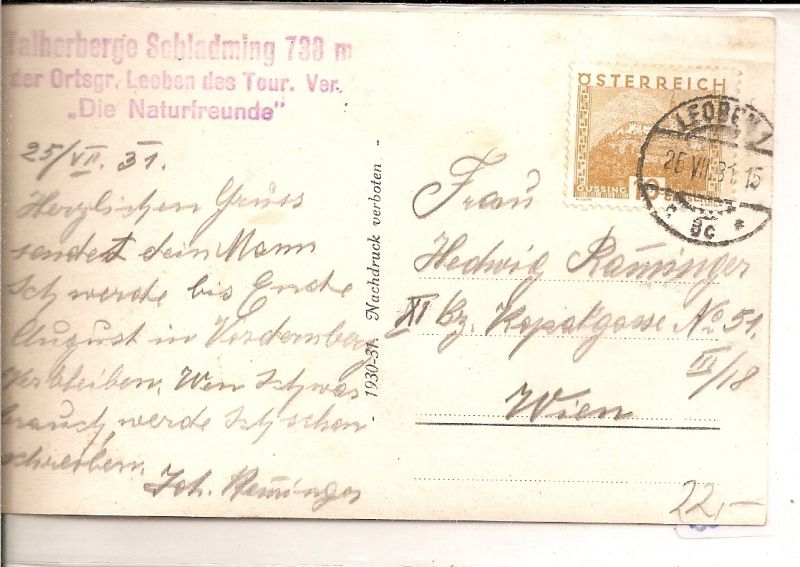 Talherberge Schladming 738 m
der Ortsgr. Leoben des Tour. Ver.
„Die Naturfreunde"
25/VII. 31.
Herzlichen Gruss
sendet dein Mann
Ich werde bis Ende
August in Vordernberg
Verbleiben. Wen Ich was
brauch, werde Ich schon
schreiben.
Joh. Raminger
- 1930-31. Nachdruck verboten -
ÖSTERREICH
GÜSSING
LEOBEN 2
25.VII.31.15
* 3c *
Frau
Hedwig Raminger
XI Bz. Kopalgasse No 51.
III/18
Wien
22,-